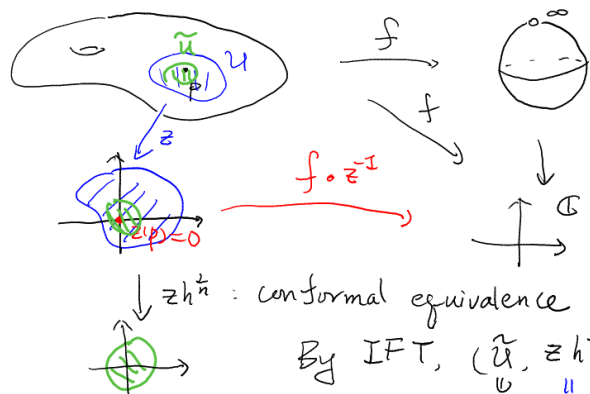 ∞
Ũ
U
f
p
f
z
f∘z⁻¹
z(p)=0
ℂ
zh^{1/n} : conformal equivalence
By IFT, (Ũ, zh